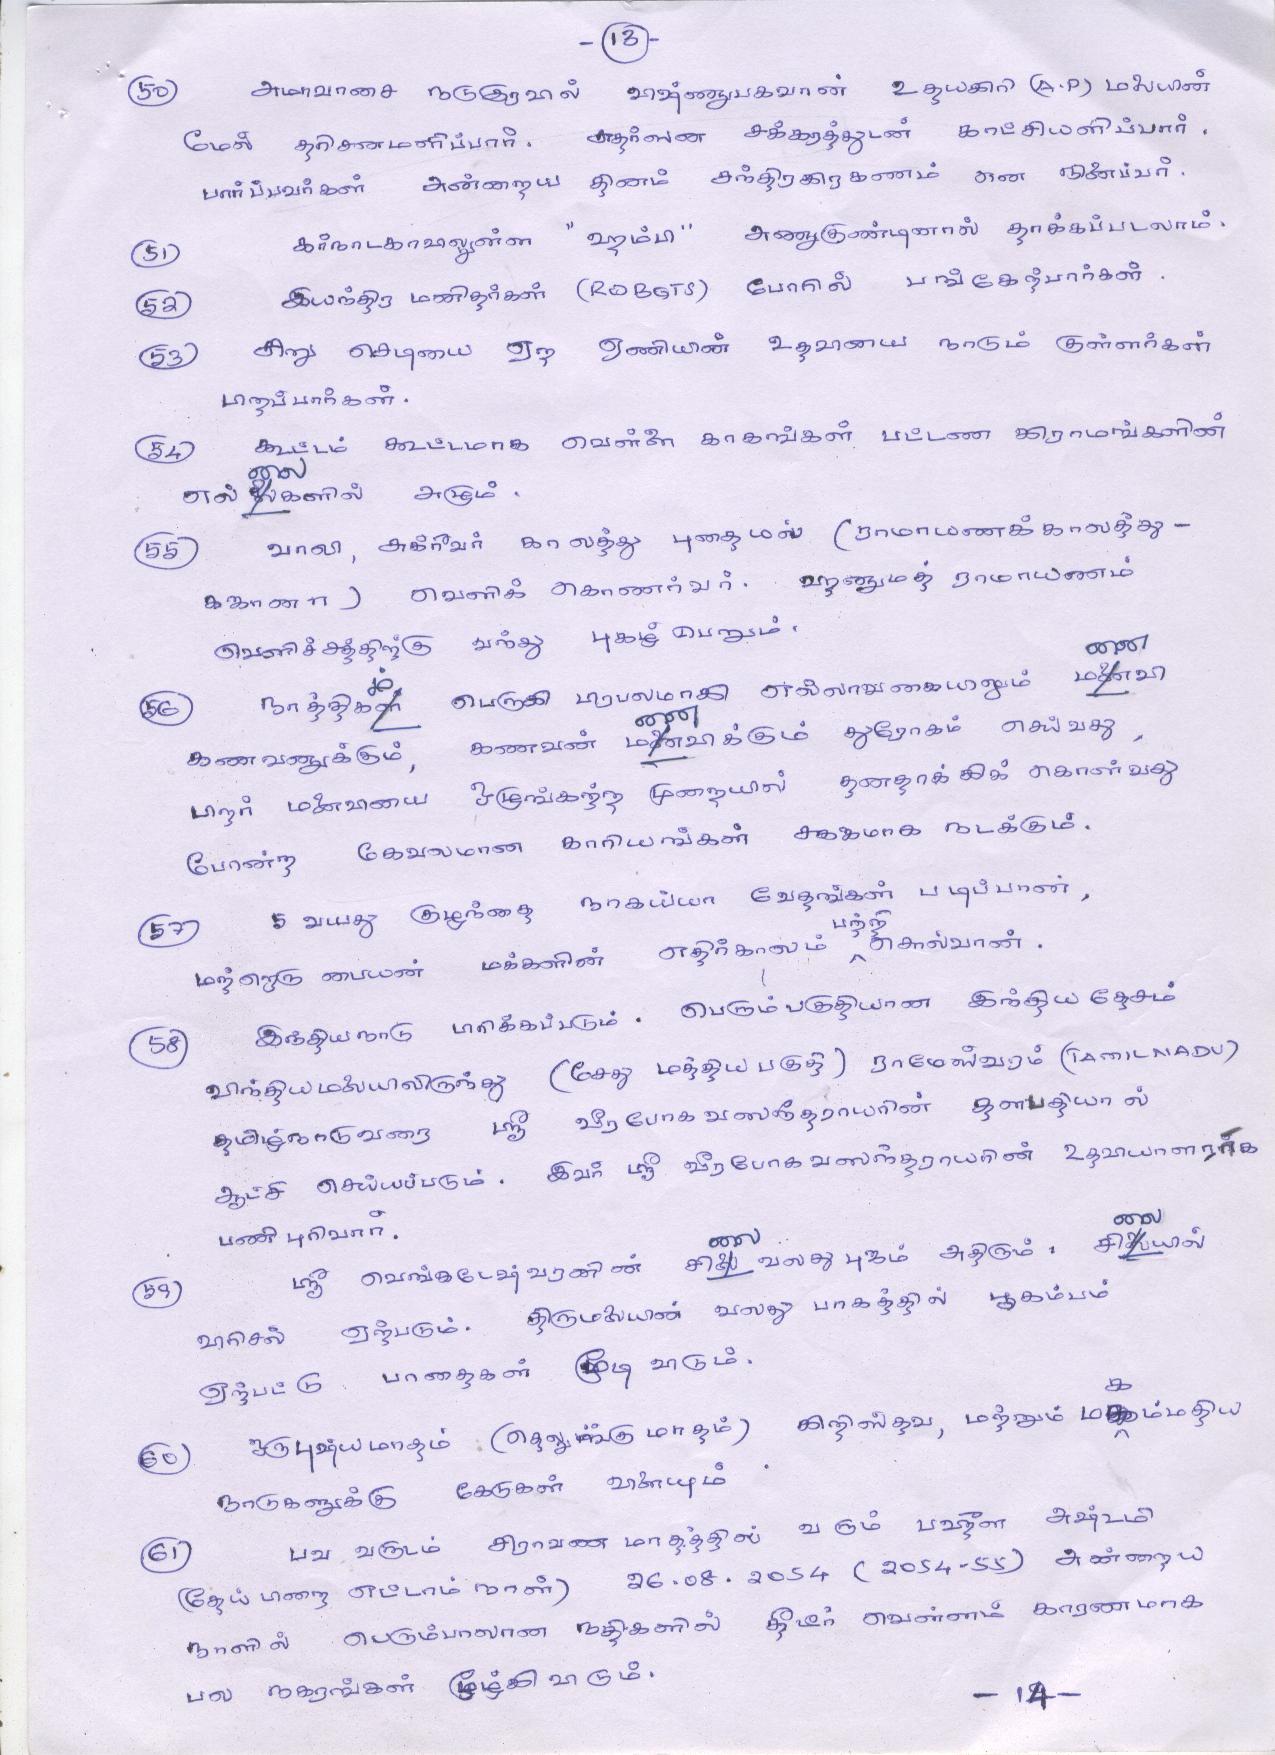 - 13 -
50 அமாவாசை நடுஇரவில் விஷ்ணுபகவான் உதயகிரி (A.P) மலையின்
மேல் தரிசனமளிப்பார். சுதர்ஸன சக்கரத்துடன் காட்சியளிப்பார்.
பார்ப்பவர்கள் அன்றைய தினம் சந்திரகிரகணம் என நினைப்பர்.
51 கர்நாடகாவிலுள்ள "ஹம்பி" அணுகுண்டினால் தாக்கப்படலாம்.
52 இயந்திர மனிதர்கள் (ROBOTS) போரில் பங்கேற்பார்கள்.
53 சிறு செடியை ஏற ஏணியின் உதவியை நாடும் குள்ளர்கள்
பிறப்பார்கள்.
54 கூட்டம் கூட்டமாக வெள்ளை காகங்கள் பட்டண கிராமங்களின்
எல்லைகளில் அழும்.
55 வாலி, சுக்ரீவர் காலத்து புதையல் (ராமாயணக் காலத்து -
கஜானா) வெளிக் கொணர்வர். ஹனுமத் ராமாயணம்
வெளிச்சத்திற்கு வந்து புகழ் பெறும்.
56 நாத்திகம் பெருகி பிரபலமாகி எல்லாவகையிலும் மனைவி
கணவனுக்கும், கணவன் மனைவிக்கும் துரோகம் செய்வது,
பிறர் மனைவியை ஒழுங்கற்ற முறையில் தனதாக்கிக் கொள்வது
போன்ற கேவலமான காரியங்கள் சகஜமாக நடக்கும்.
57 5 வயது குழந்தை நாகய்யா வேதங்கள் படிப்பான்,
மற்றொரு பையன் மக்களின் எதிர்காலம் பற்றி சொல்வான்.
58 இந்தியநாடு பிரிக்கப்படும். பெரும்பகுதியான இந்திய தேசம்
விந்தியமலையிலிருந்து (சேது மத்திய பகுதி) ராமேஸ்வரம் (TAMILNADU)
தமிழ்நாடுவரை ஸ்ரீ வீரபோகவஸந்தராயரின் தளபதியால்
ஆட்சி செய்யப்படும். இவர் ஸ்ரீ வீரபோகவஸந்தராயரின் உதவியாளராக
பணி புரிவார்.
59 ஸ்ரீ வெங்கடேஷ்வரனின் சிலை வலது புஜம் அதிரும். சிலையில்
விரிசல் ஏற்படும். திருமலையின் வலது பாகத்தில் பூகம்பம்
ஏற்பட்டு பாதைகள் மூடி விடும்.
60 ஒரு புஷ்யமாதம் (தெலுங்கு மாதம்) கிறிஸ்தவ, மற்றும் முகம்மதிய
நாடுகளுக்கு கேடுகள் விளையும்.
61 பவ வருடம் சிராவண மாதத்தில் வரும் பஹுள அஷ்டமி
(தேய்பிறை எட்டாம் நாள்) 26.08.2054 (2054-55) அன்றைய
நாளில் பெரும்பாலான நதிகளில் திடீர் வெள்ளம் காரணமாக
பல நகரங்கள் மூழ்கிவிடும்.
- 14 -